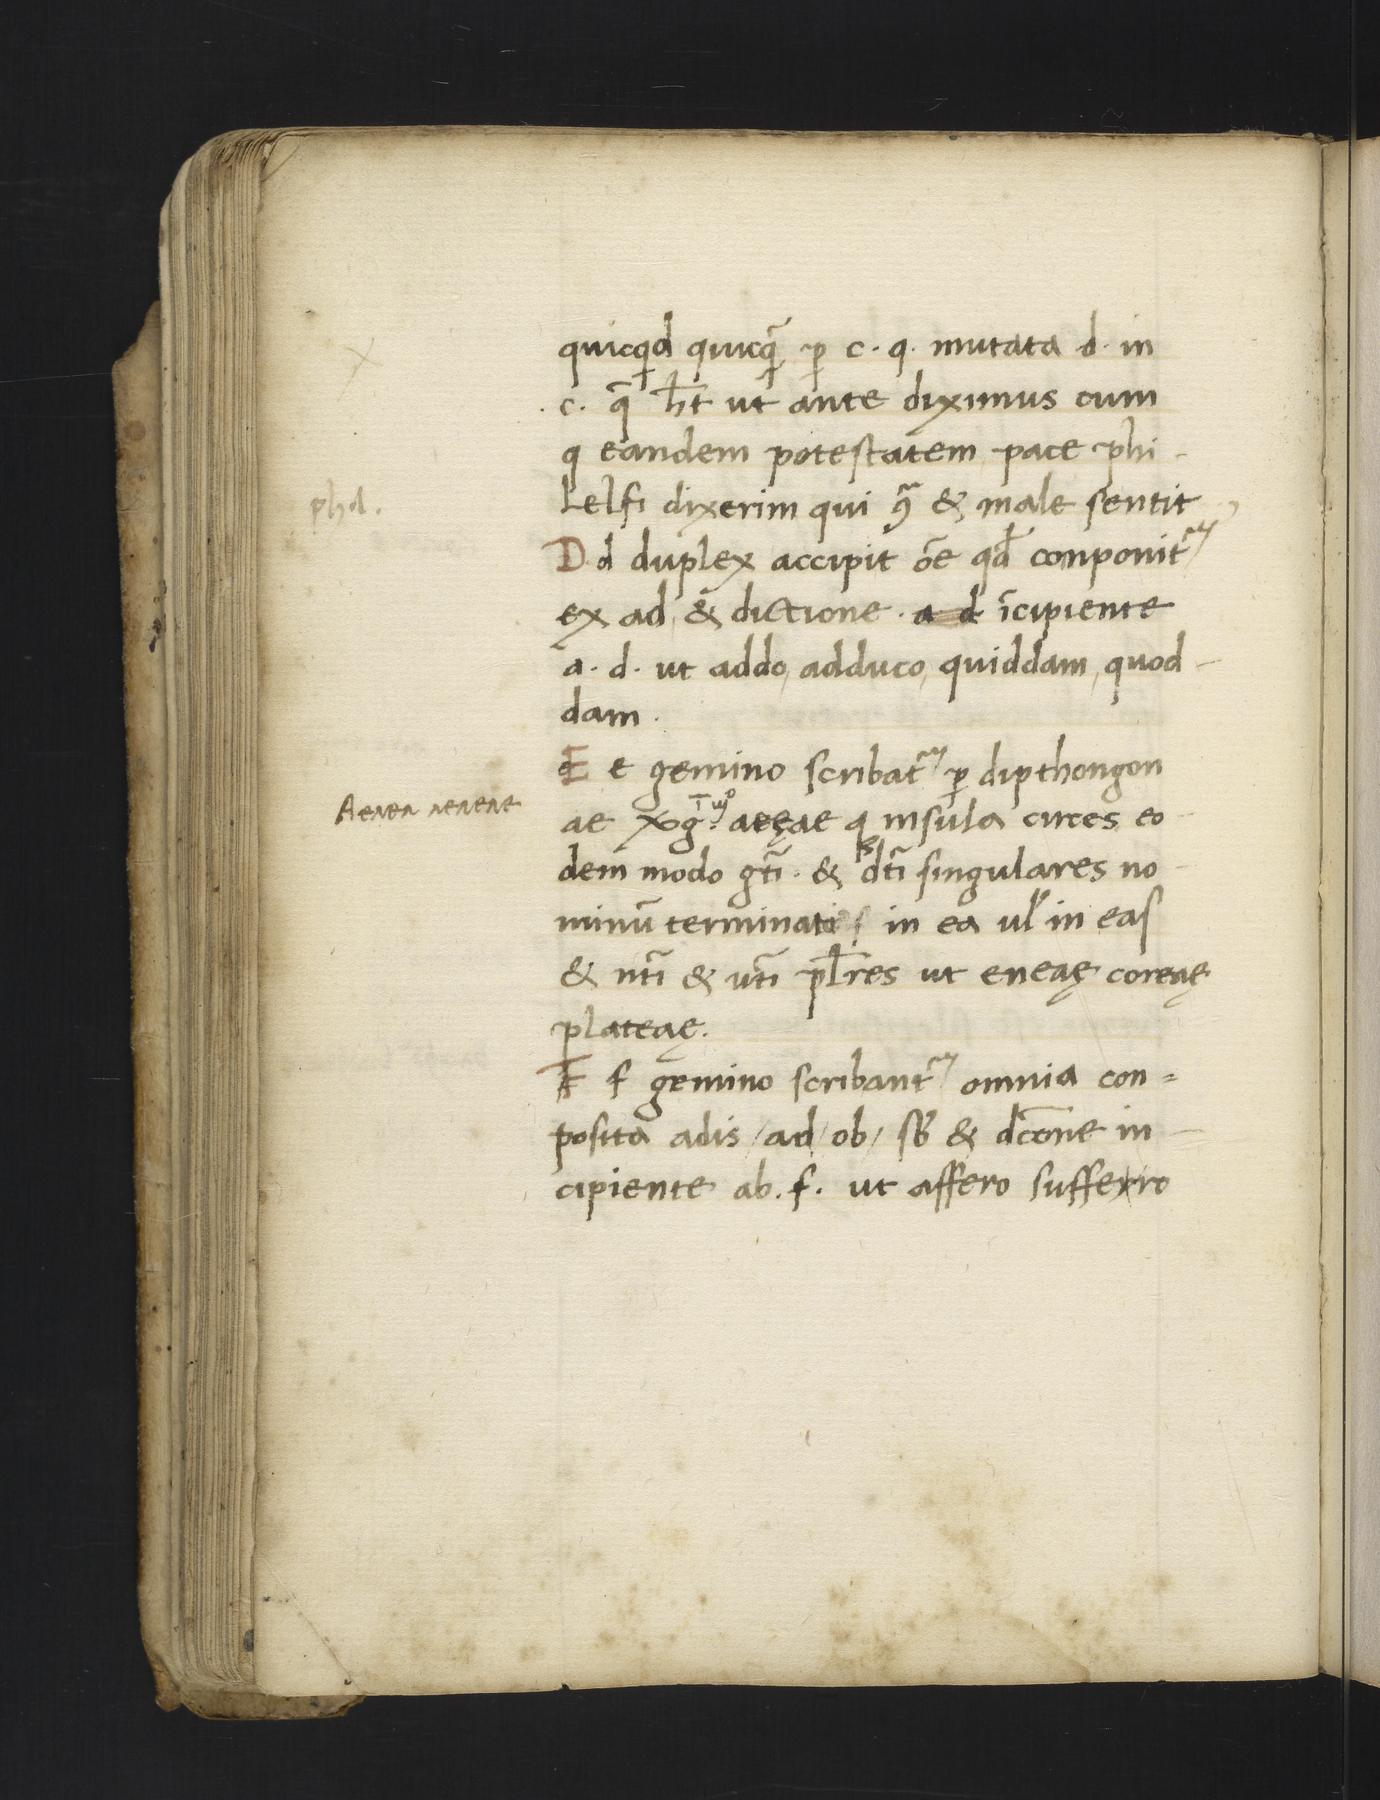 quicqd quicq̃ p̱ c. q. mutata d. in
c. q̃ h̃t ut ante diximus cum
q eandem potestatem pace phi-
phil.
lelfi dixerim qui & male sentit
D d duplex accipit õe qd̃ componit᷑
ex ad & dictione a d ĩcipiente
a. d. ut addo, adduco, quiddam, quod-
dam.
E e gemino scribat᷑ p̱ dipthongon
Aeaea aeaeae
ae aeęae q insula circes eo-
dem modo gt̃i. & dt̃i singulares no-
minũ terminati in ea ul̃ in eas
& nt̃i & vt̃i pl̃res ut eneaę coreaę
plateaę.
F f gemino scribant᷑ omnia con=
posita adis / ad / ob / sb̃ & dc̃one in-
cipiente ab. f. ut affero suffero